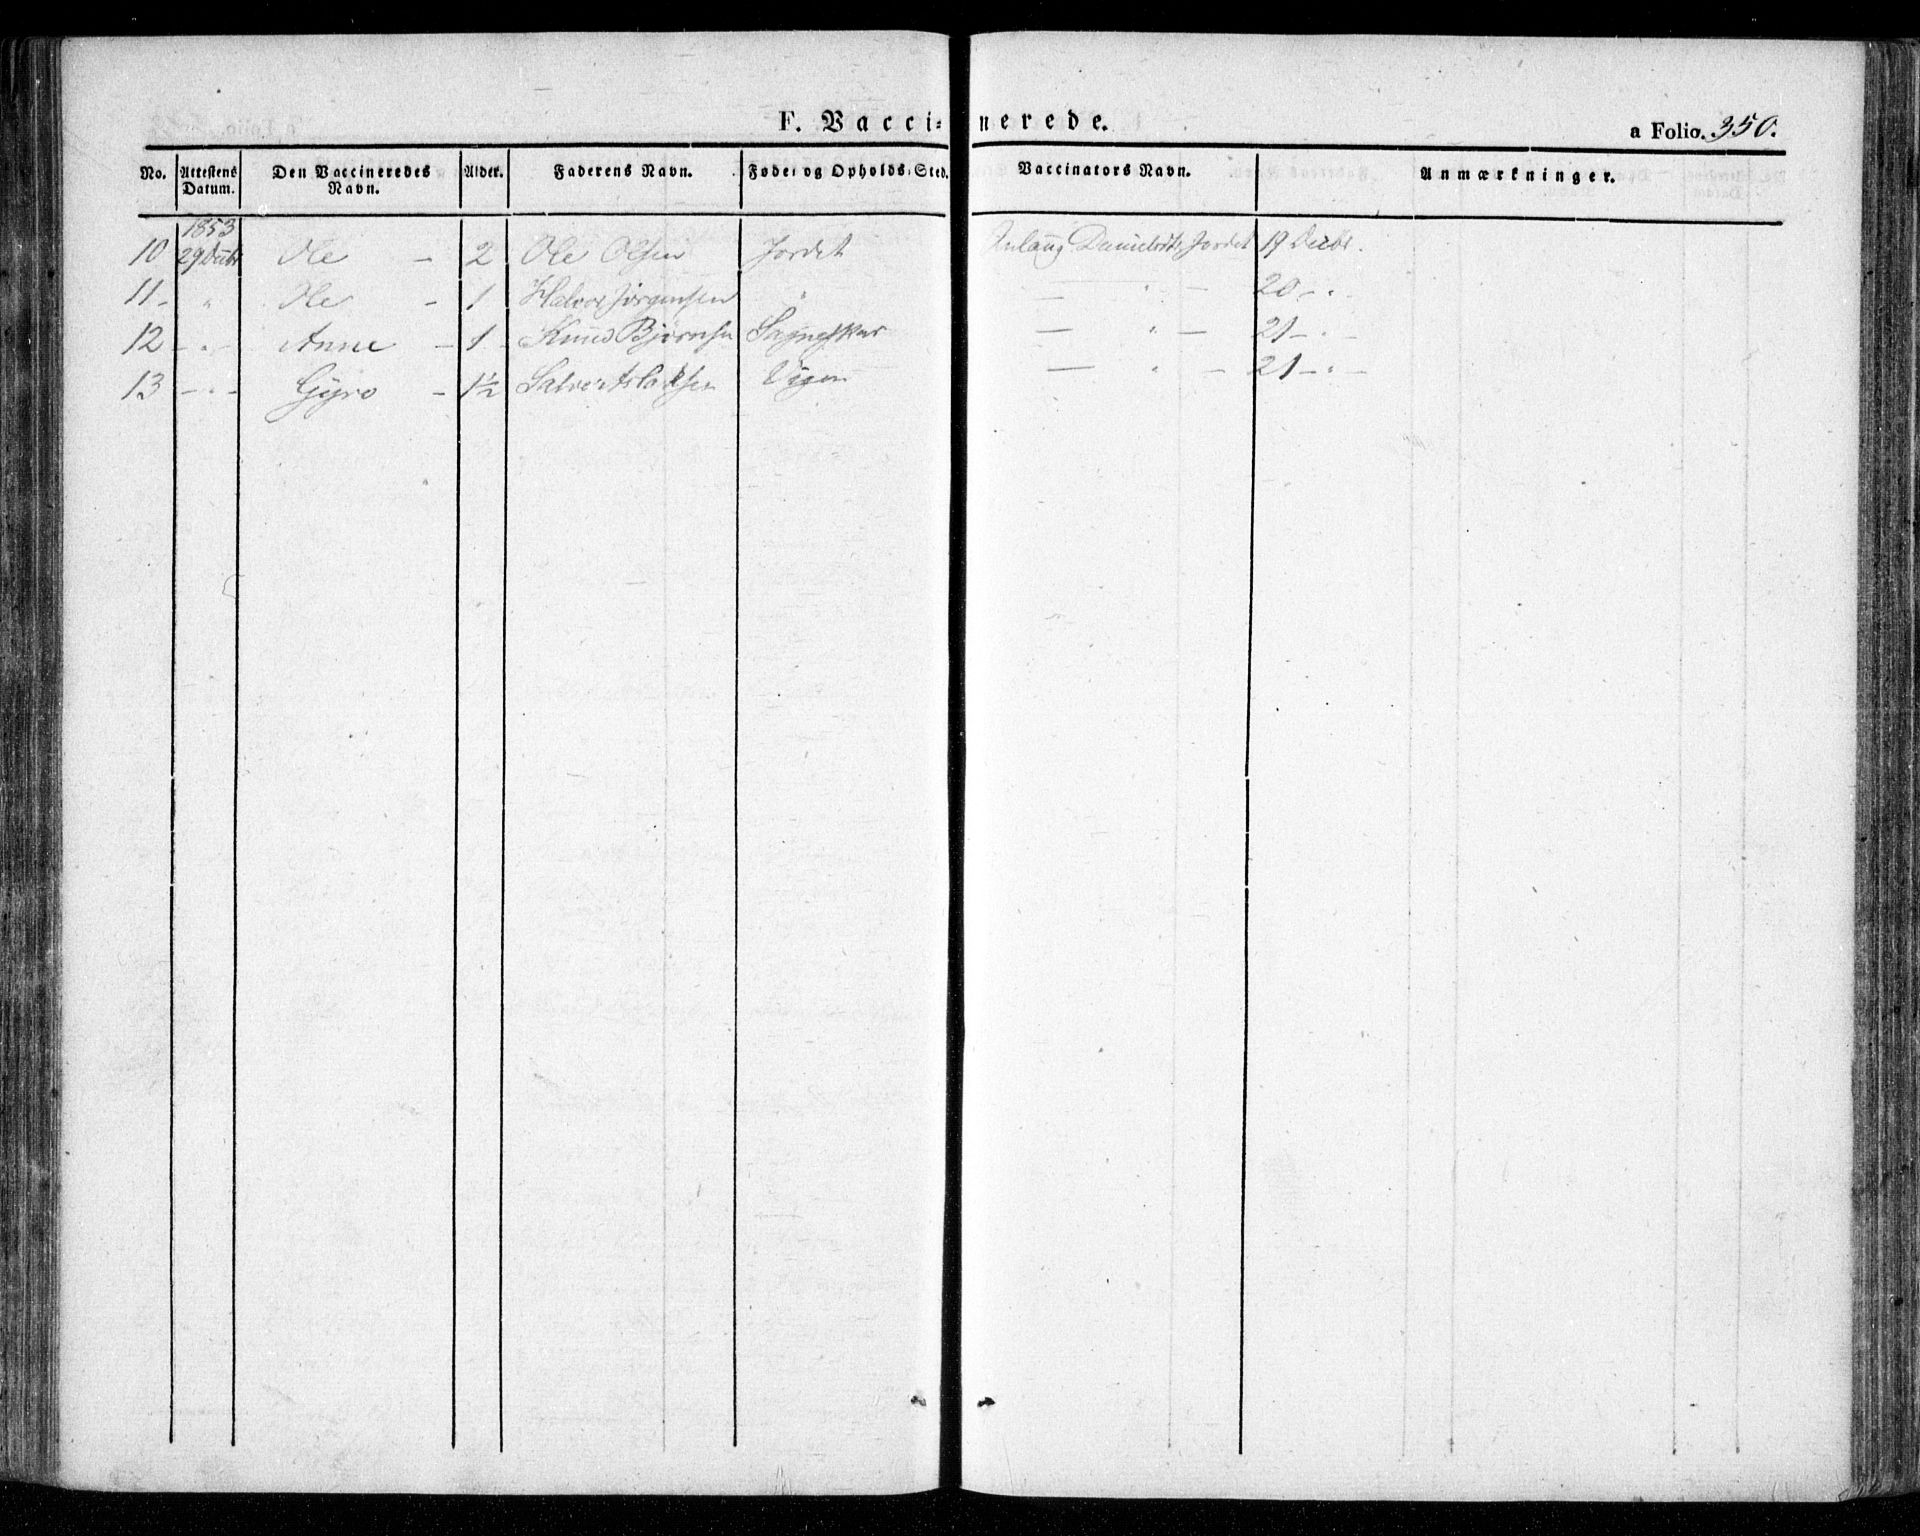 F. Vacci- nerede.
a Folio. 350.
No. Attestens Datum. Den Vaccineredes Navn. Alder. Faderens Navn. Føde- og Opholds-Sted. Vaccinators Navn. Anmærkninger.
1853
10 29 Decbr Ole - 2 Ole Olsen Jordet Jordet 19 Decbr.
11 - " Ole - 1 Halvor Jørgensen " — " — 20 - " -
12 - " - Anne - 1 - Knud Bjørnsen — " — 21 - " -
13 - " - Gyro - 1½ Salve Aslaksen Vigen — " — 21 - " -